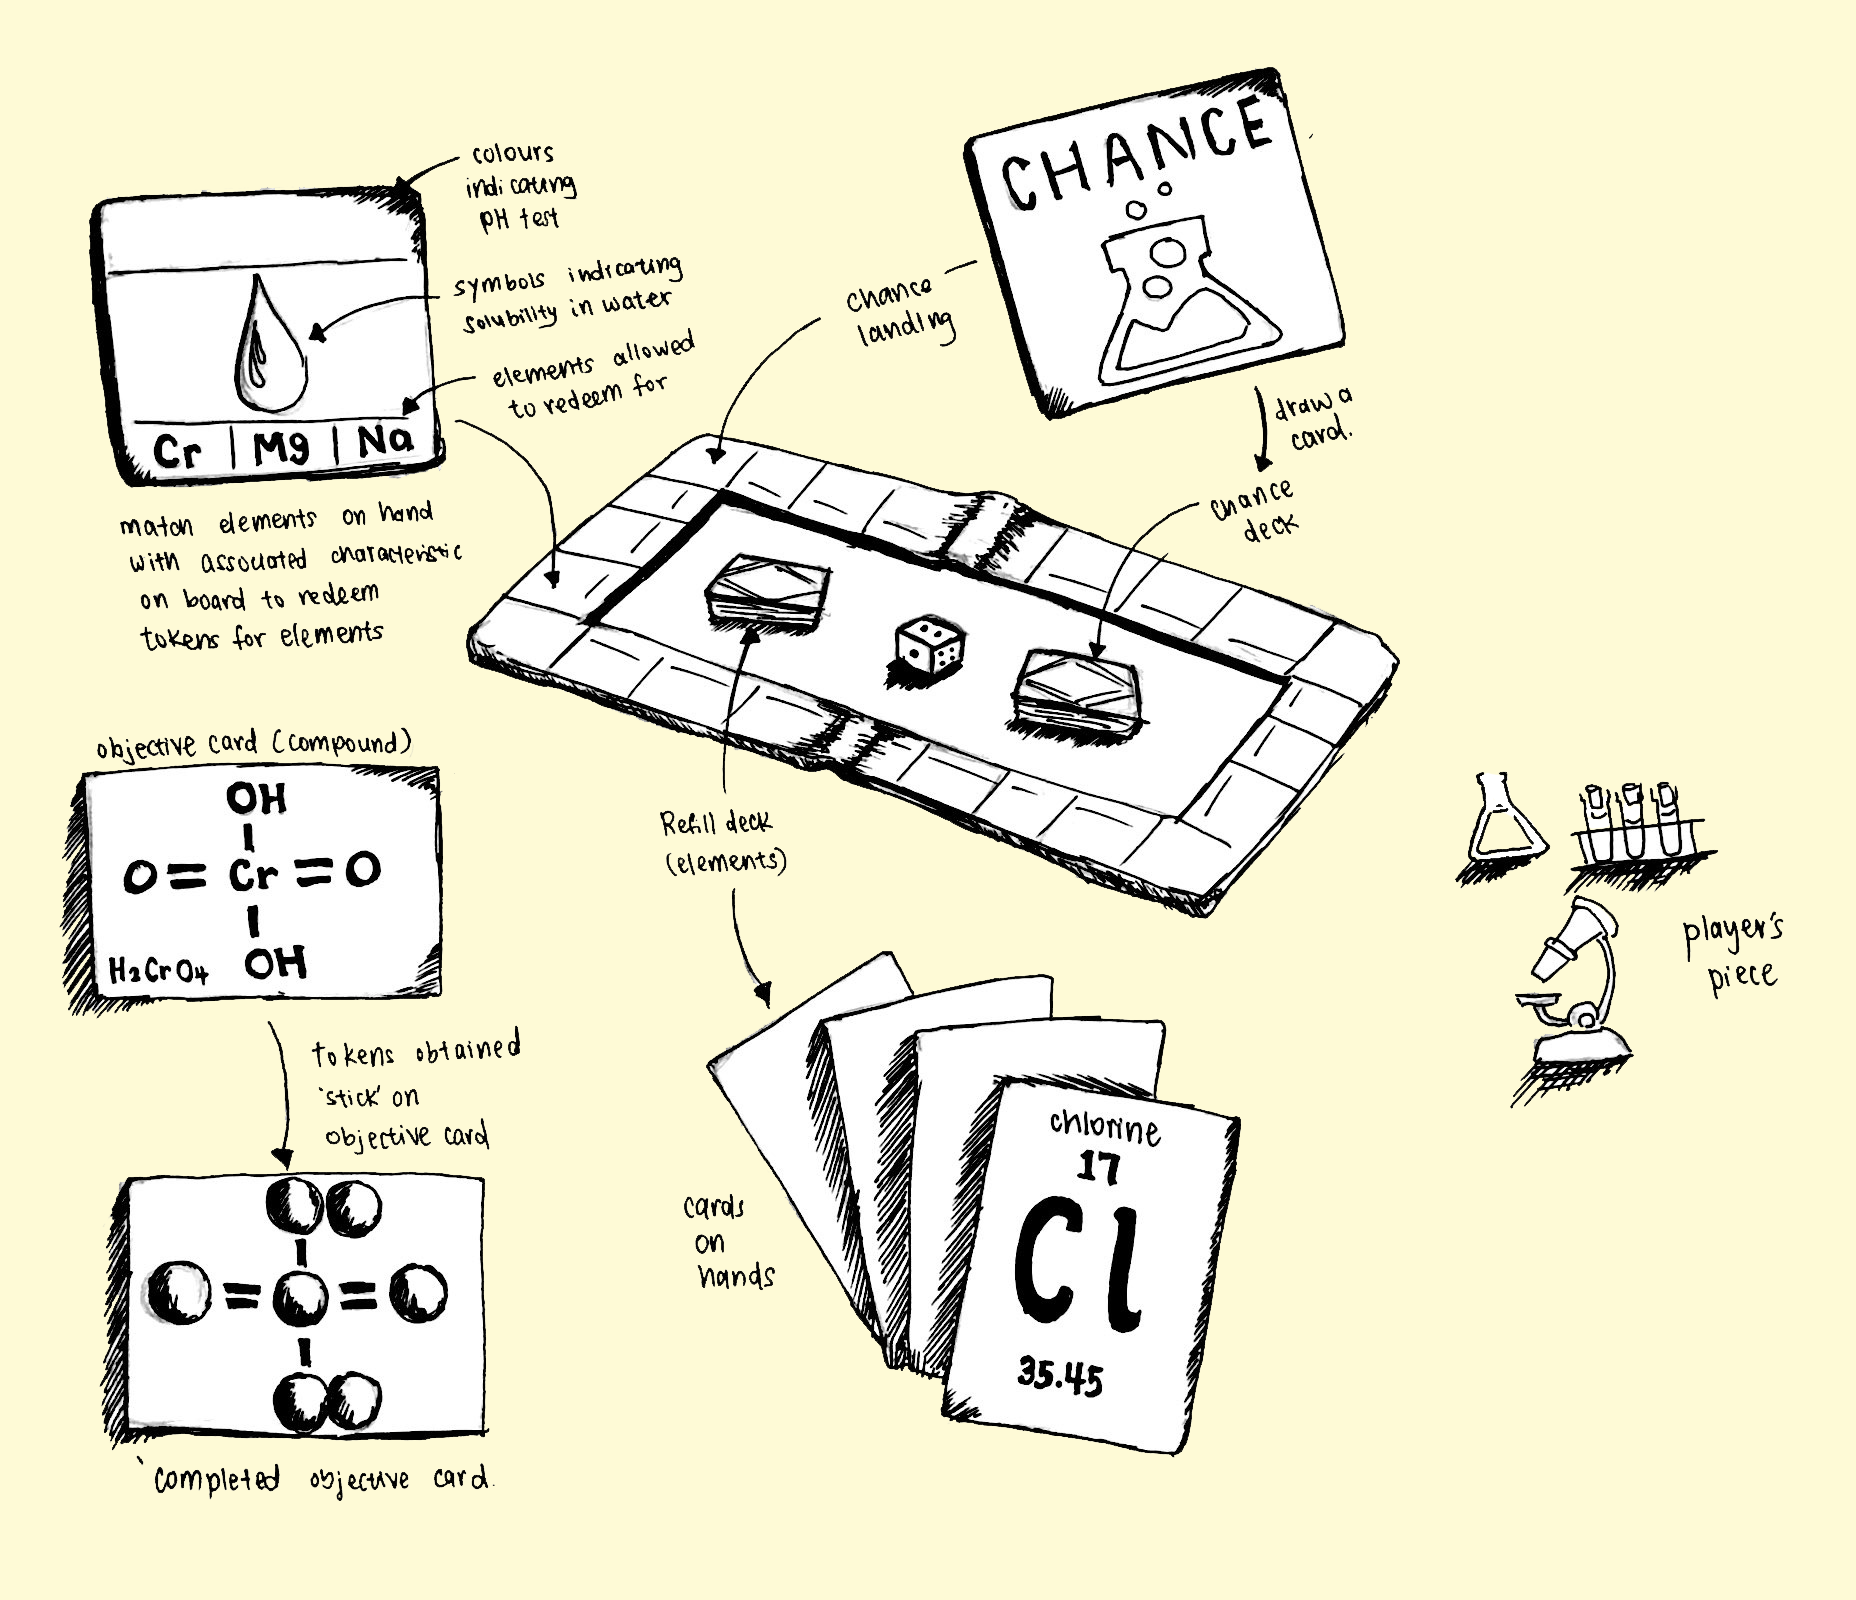 colours
indicating
pH test
symbols indicating
solubility in water
elements allowed
to redeem for
Cr | Mg | Na
match elements on hand
with associated characteristic
on board to redeem
tokens for elements
CHANCE
chance
landing
draw a
card.
chance
deck
objective card (compound)
OH
O = Cr = O
OH
H₂CrO₄
tokens obtained
'stick' on
objective card
completed objective card.
Refill deck
(elements)
cards
on
hands
chlorine
17
Cl
35.45
player's
piece